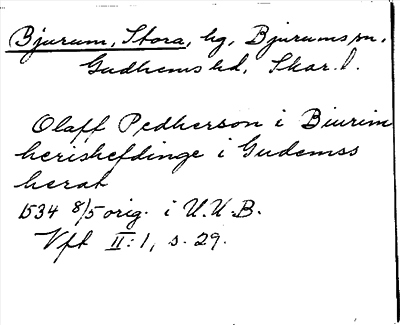 Bjurum, Stora, hg, Bjurums sn,
Gudhems hd, Skar. l.
Olaff Pedherson i Biurim
herishefdinge i Gudemss
herat
1534 8/5 orig. i U.U.B.
Vft II:1, s. 29.